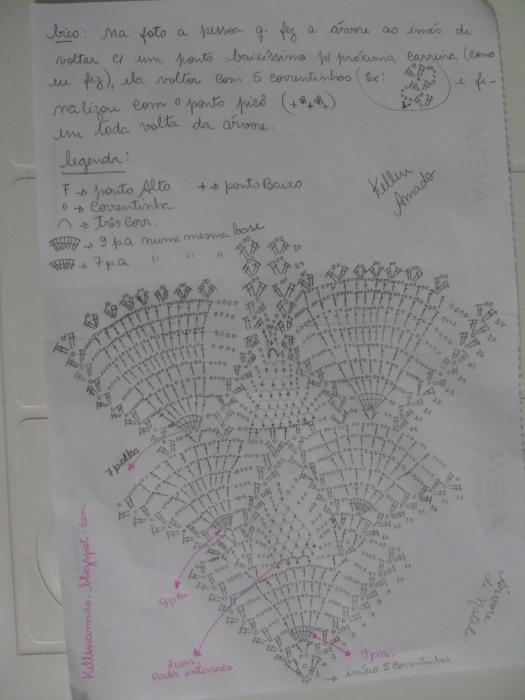 bico: na foto a pessoa q. fez a árvore ao invés de
voltar c/ um ponto baixíssimo p/ próxima carreira (como
eu fiz), ela voltou com 5 correntinhas (Ex: ) e fi-
nalizou com o ponto picô
em toda volta da árvore.
legenda:
F → ponto Alto + → ponto Baixo
o → correntinha
→ Três corr.
→ 9 p.a numa mesma base
→ 7 p.a " " "
Kellen
Amado
30
29
7 p altos
Kellenamado.blogspot.com
9pa
3 corr.
Cada intervalo
9p.a.
→ início 5 correntinhas
Árvore
de Natal
AVEVA
AVEVA